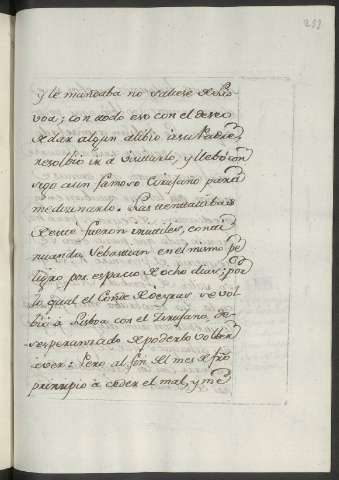 253
y le mandaba no saliese de Lis-
voa; con todo eso con el deseo
de dar algun alibio à su Padre,
resolbio ir à visitarlo, y llebó con
sigo a un famoso Cirujano para
medizinarlo. Las tentatibas
de este fueron inutiles, conti
nuando Sebastian en el mismo pe
ligro por espacio de ocho dias; por
lo qual el Conde de Oeyras se vol
bió à Lisboa con el Zirujano, de-
sesperanzado de poderlo volber
àver: Pero al fin del mes dió
principio à ceder el mal, y me